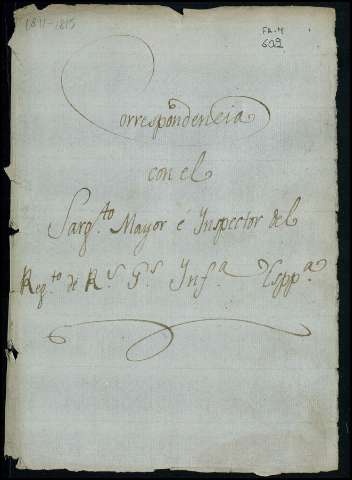 1811-1815
FA.4
692
Correspondencia
con el
Sarg.to Mayor é Inspector del
Reg.to de R.s G.s Inf.a Espp.a